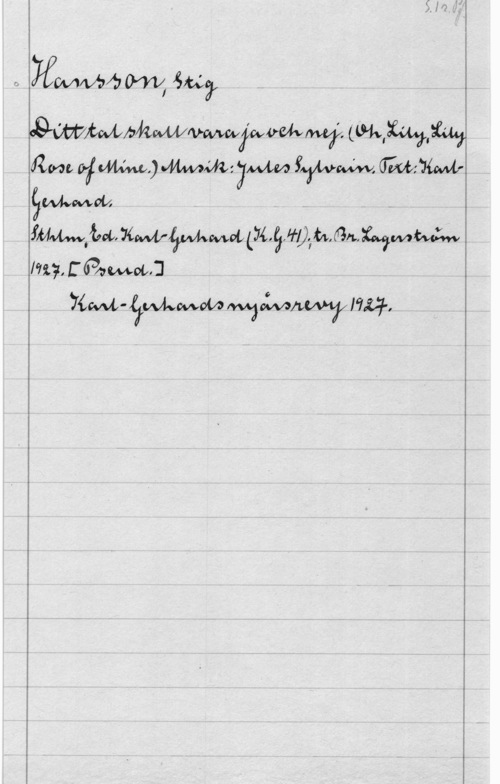 Hansson, Stig
Ditt tal skall vara ja och nej. (Oh, Lily, Lily
Rose of Mine.) Musik: Jules Sylvain. Text: Karl-
Gerhard.
Sthlm, Ed. Karl-Gerhard (K.G. 41); tr. Br. Lagerström
1927. [Pseud.]
Karl-Gerhards nyårsrevy 1927.